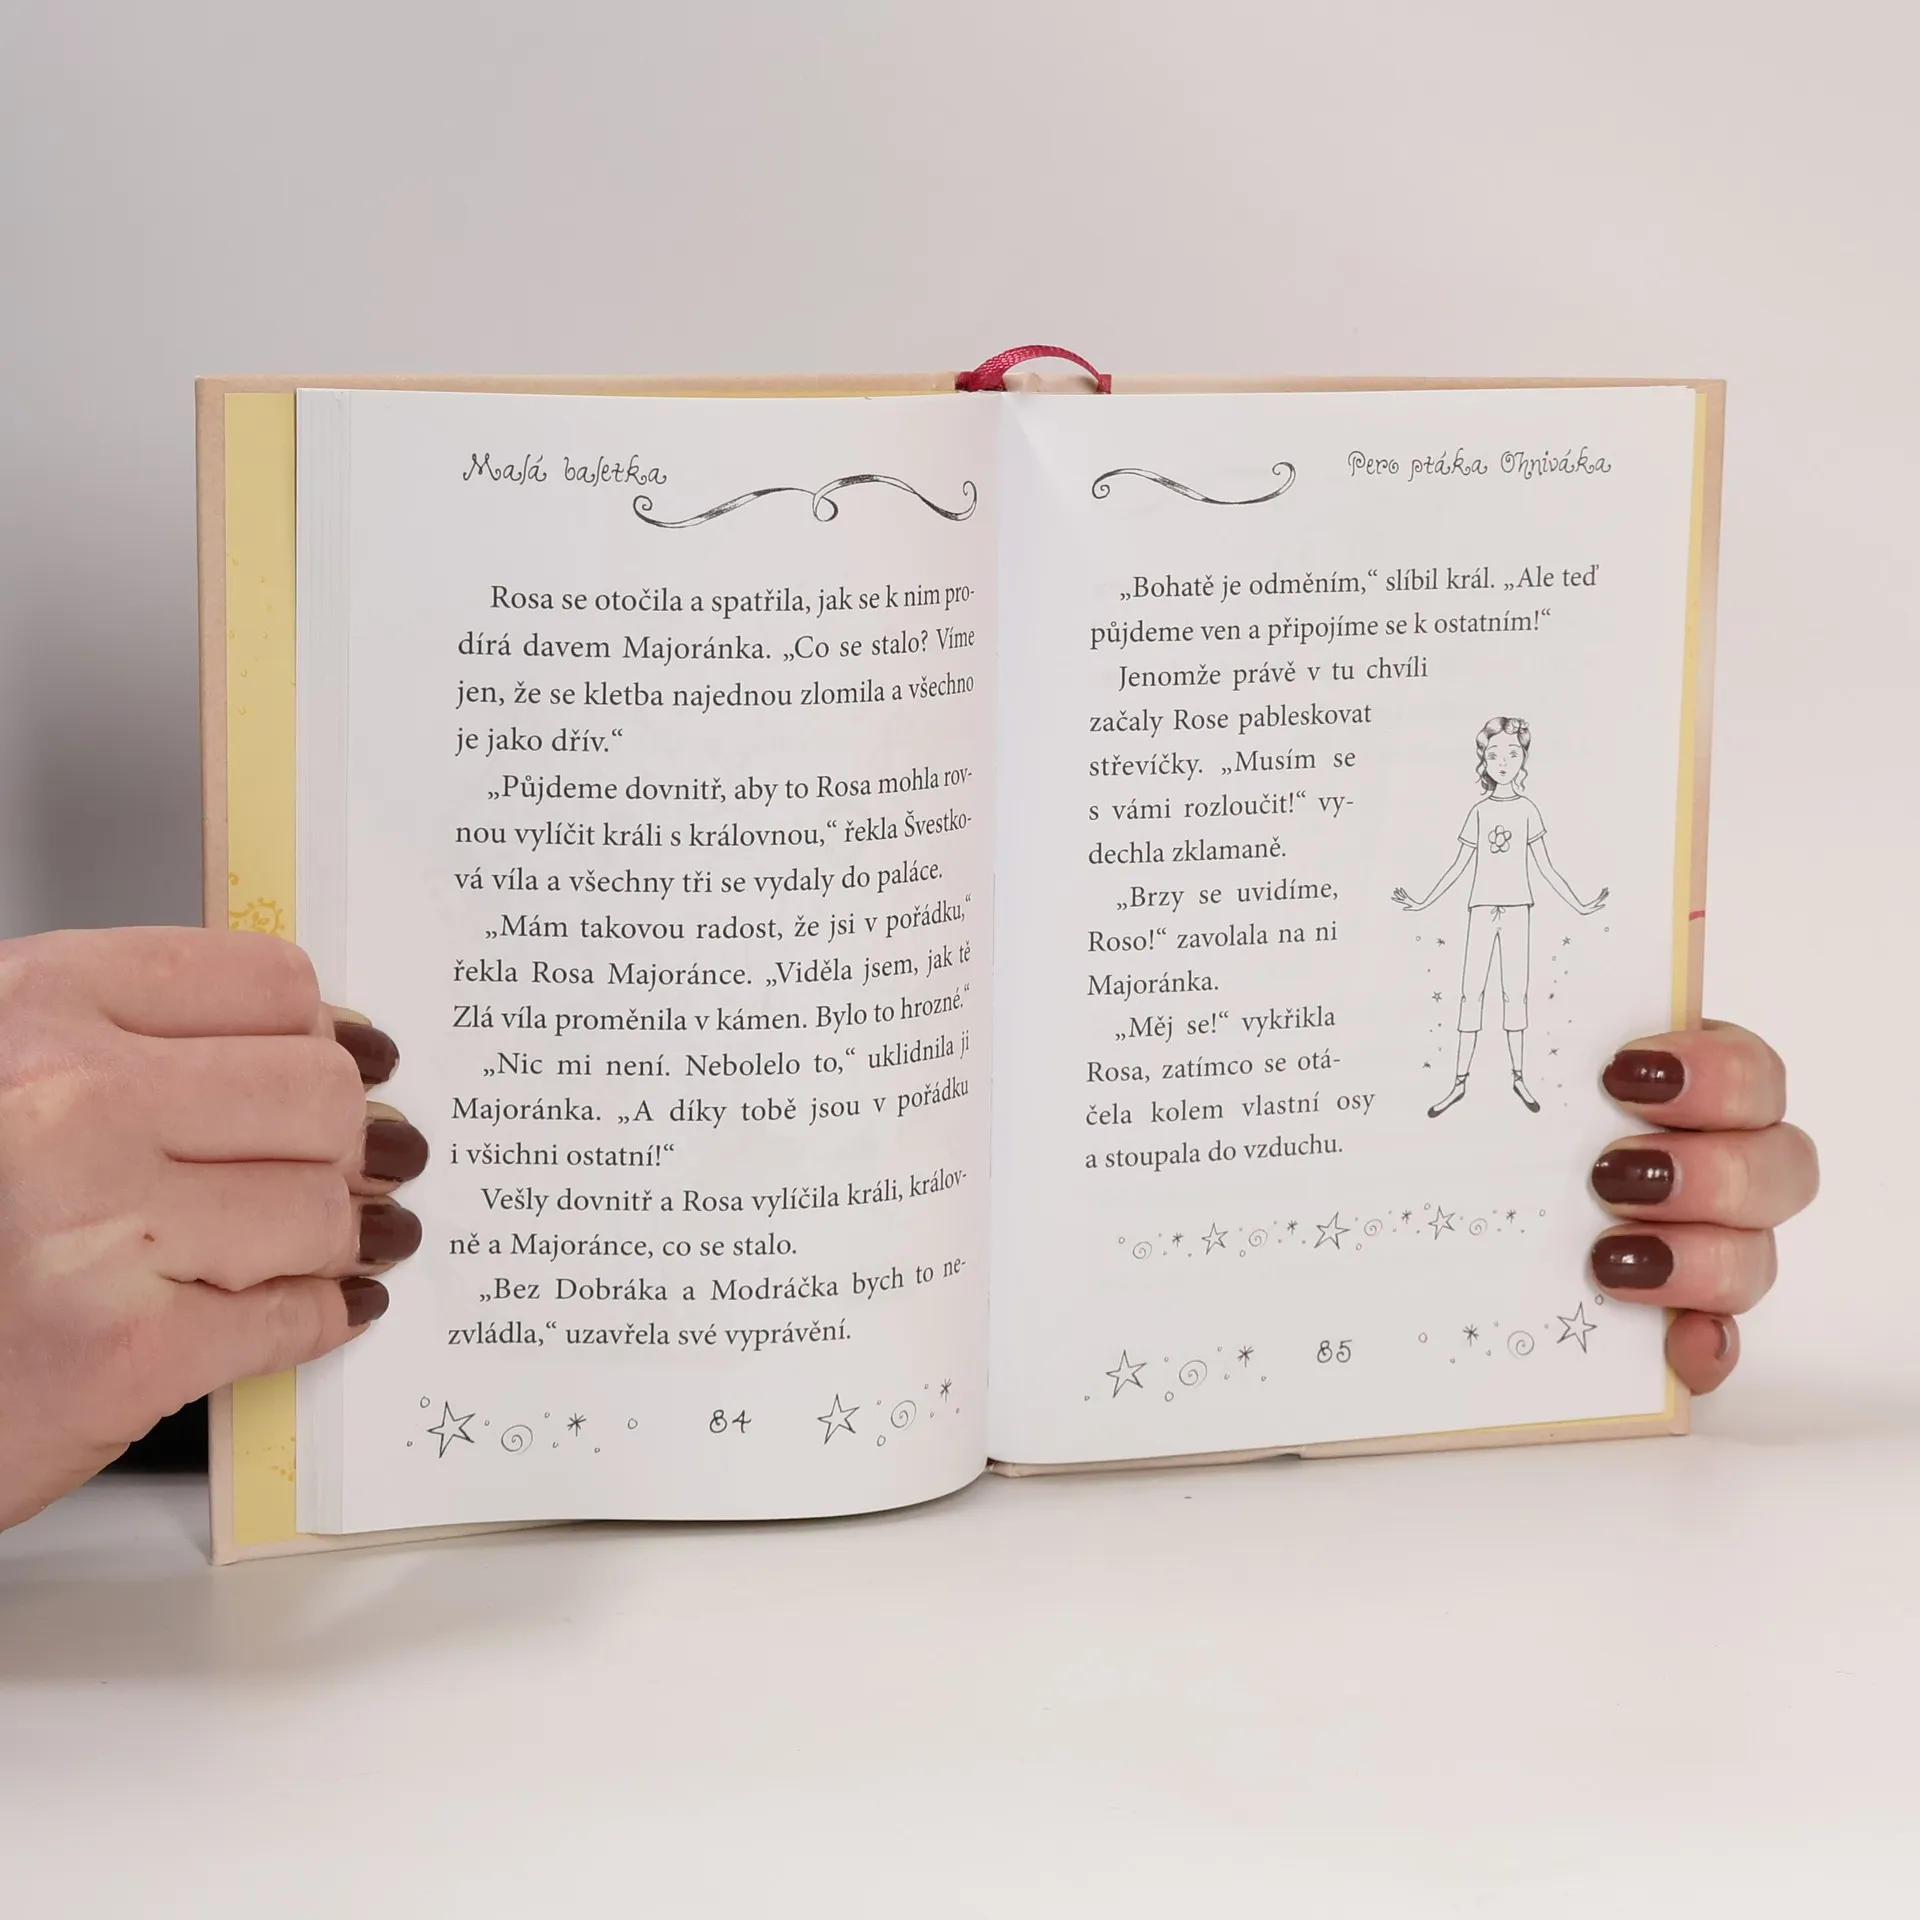 Malá baletka
Rosa se otočila a spatřila, jak se k nim pro-
dírá davem Majoránka. „Co se stalo? Víme
jen, že se kletba najednou zlomila a všechno
je jako dřív.“
„Půjdeme dovnitř, aby to Rosa mohla rov-
nou vylíčit králi s královnou,“ řekla Švestko-
vá víla a všechny tři se vydaly do paláce.
„Mám takovou radost, že jsi v pořádku,“
řekla Rosa Majoránce. „Viděla jsem, jak tě
Zlá víla proměnila v kámen. Bylo to hrozné.“
„Nic mi není. Nebolelo to,“ uklidnila ji
Majoránka. „A díky tobě jsou v pořádku
i všichni ostatní!“
Vešly dovnitř a Rosa vylíčila králi, králov-
ně a Majoránce, co se stalo.
„Bez Dobráka a Modráčka bych to ne-
zvládla,“ uzavřela své vyprávění.
84
Pero ptáka Ohniváka
„Bohatě je odměním,“ slíbil král. „Ale teď
půjdeme ven a připojíme se k ostatním!“
Jenomže právě v tu chvíli
začaly Rose pableskovat
střevíčky. „Musím se
s vámi rozloučit!“ vy-
dechla zklamaně.
„Brzy se uvidíme,
Roso!“ zavolala na ni
Majoránka.
„Měj se!“ vykřikla
Rosa, zatímco se otá-
čela kolem vlastní osy
a stoupala do vzduchu.
85